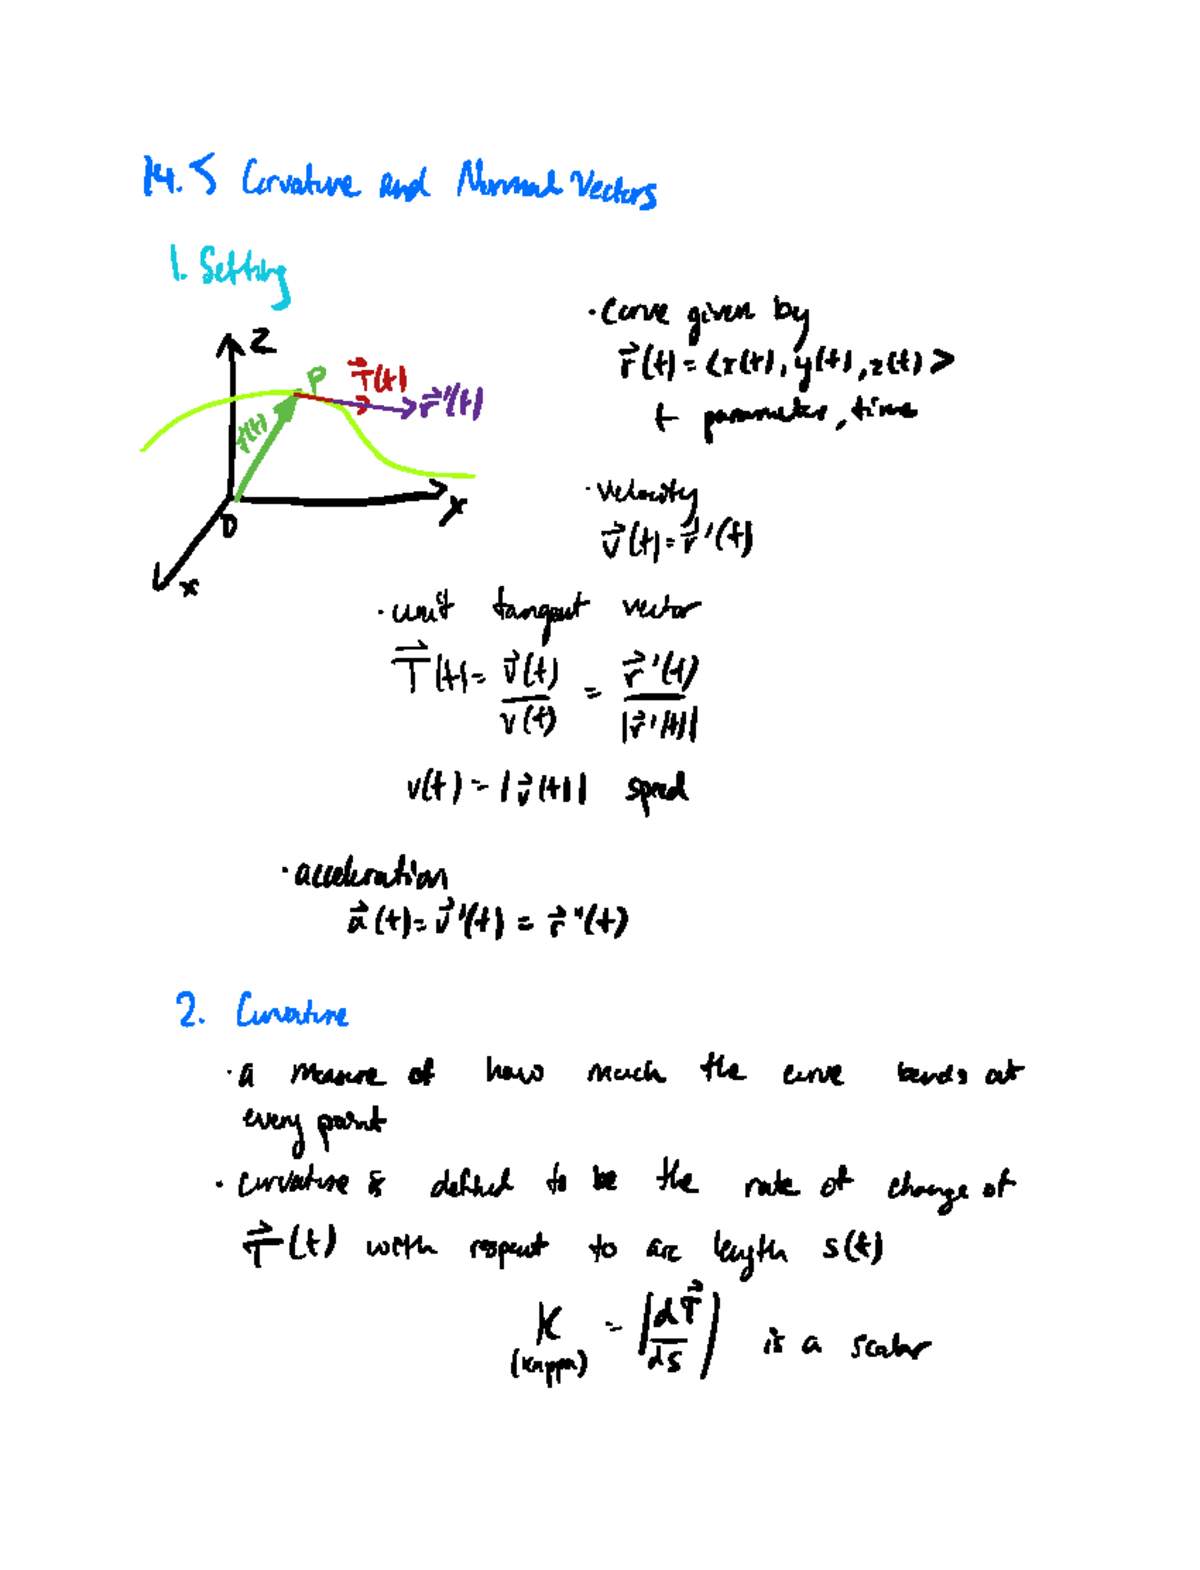 14.5 Curvature and Normal Vectors
1. Setting
z
P
T⃗(t)
r⃗'(t)
r(t)
O
x
x
· Curve given by
r⃗(t) = <x(t), y(t), z(t)>
t parameter, time
· velocity
v⃗(t) = r⃗'(t)
· unit tangent vector
T⃗(t) = v⃗(t)/v(t) = r⃗'(t)/|r⃗'(t)|
v(t) = |v⃗(t)| speed
· acceleration
a⃗(t) = v⃗'(t) = r⃗''(t)
2. Curvature
· a measure of how much the curve bends at
every point
· curvature is defined to be the rate of change of
T⃗(t) with respect to arc length s(t)
K = |dT⃗/ds| is a scalar
(kappa)